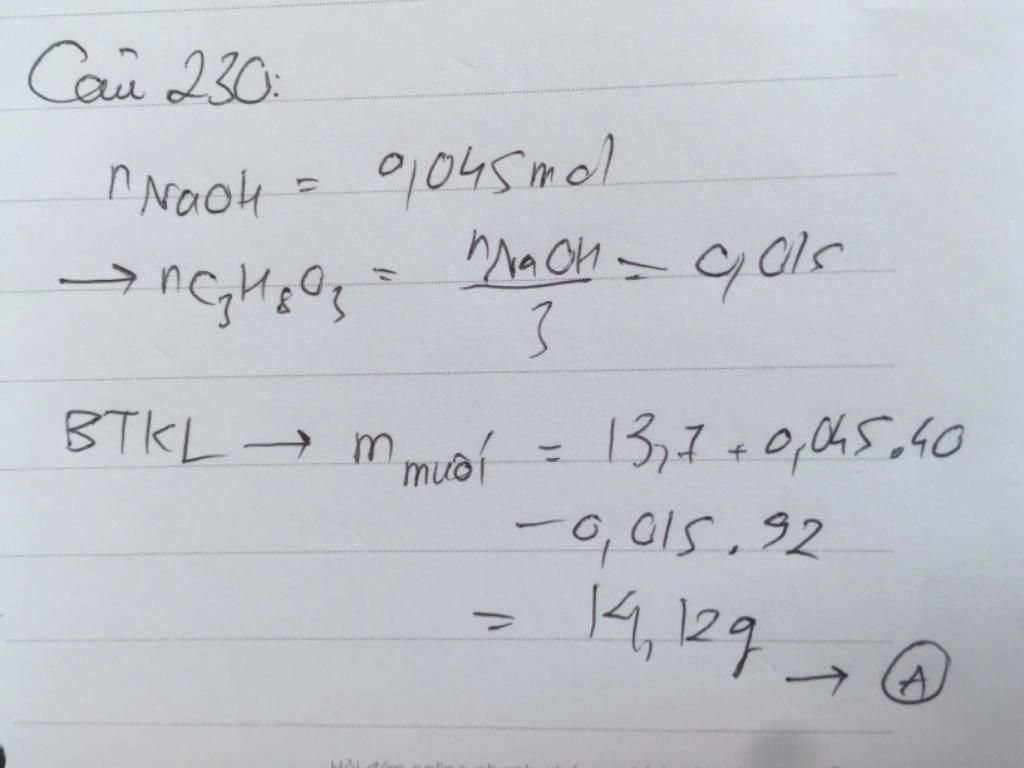 Câu 230:
nNaOH = 0,045mol
→ nC3H8O3 = nNaOH/3 = 0,015
BTKL → m muối = 13,7 + 0,045.40
- 0,015.92
= 14,12g
→ A